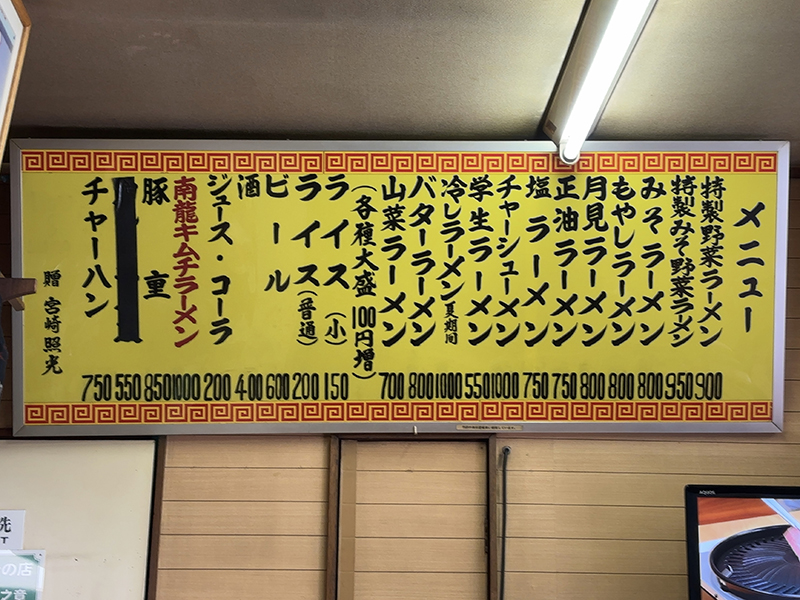 メニュー
特製野菜ラーメン 900
特製みそ野菜ラーメン 950
みそラーメン 800
もやしラーメン 800
月見ラーメン 800
正油ラーメン 750
塩ラーメン 750
チャーシューメン 1000
学生ラーメン 550
冷しラーメン 夏期間 1000
バターラーメン 800
山菜ラーメン 700
(各種大盛100円増)
ライス(小) 150
ライス(普通) 200
ビール 600
酒 400
ジュース・コーラ 200
南龍キムチラーメン 1000
豚重 850
550
チャーハン 750
贈 宮崎照光
洗
T
の店
之音
AQUOS